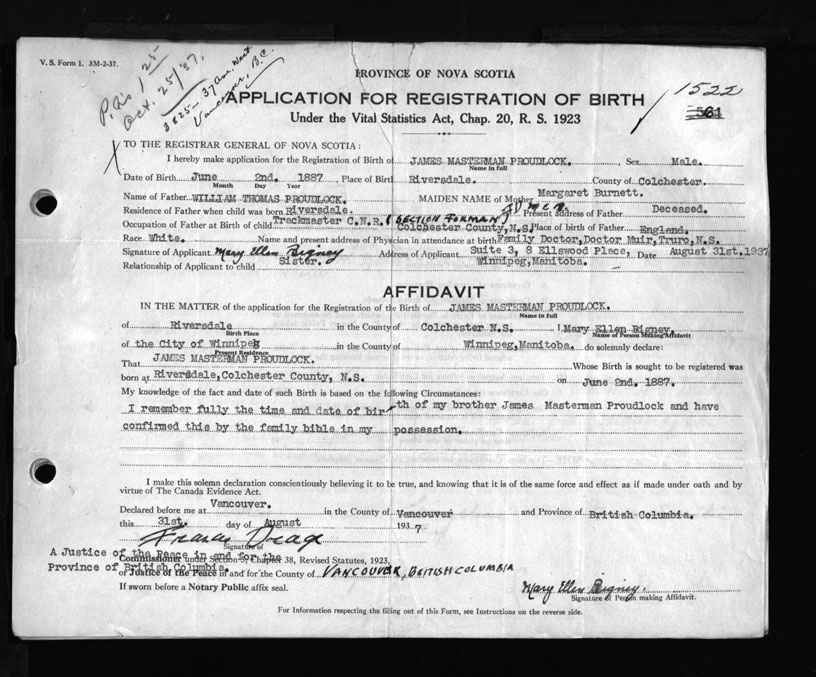 V. S. Form 1. 3M-2-37.
Oct. 25/37.
3825 - 37 Ave. West
Vancouver, B.C.
PROVINCE OF NOVA SCOTIA
1522
561
APPLICATION FOR REGISTRATION OF BIRTH
Under the Vital Statistics Act, Chap. 20, R. S. 1923
X TO THE REGISTRAR GENERAL OF NOVA SCOTIA:
I hereby make application for the Registration of Birth of JAMES MASTERMAN PROUDLOCK. Sex Male.
Name in full
Date of Birth June 2nd. 1887 Place of Birth Riversdale. County of Colchester.
Month Day Year
Name of Father WILLIAM THOMAS PROUDLOCK. MAIDEN NAME of Mother Margaret Burnett.
Residence of Father when child was born Riversdale. Present address of Father Deceased.
Occupation of Father at Birth of child Trackmaster C.N.R. (SECTION FORMAN) Colchester County, N.S. Place of birth of Father England.
Race White. Name and present address of Physician in attendance at birth Family Doctor, Doctor Muir, Truro, N.S.
Signature of Applicant Mary Ellen Bigney Address of Applicant Suite 3, 8 Ellswood Place, Date August 31st. 1937
Relationship of Applicant to child Sister. Winnipeg, Manitoba.
AFFIDAVIT
IN THE MATTER of the application for the Registration of the Birth of JAMES MASTERMAN PROUDLOCK.
Name in full
of Riversdale in the County of Colchester N.S. I, Mary Ellen Bigney,
Birth Place Name of Person Making Affidavit
of the City of Winnipeg in the County of Winnipeg, Manitoba. do solemnly declare:
Present Residence
That JAMES MASTERMAN PROUDLOCK. Whose Birth is sought to be registered was
born at Riversdale, Colchester County, N.S. on June 2nd. 1887.
My knowledge of the fact and date of such Birth is based on the following Circumstances:
I remember fully the time and date of birth of my brother James Masterman Proudlock and have
confirmed this by the family bible in my possession.
I make this solemn declaration conscientiously believing it to be true, and knowing that it is of the same force and effect as if made under oath and by
virtue of The Canada Evidence Act.
Declared before me at Vancouver. in the County of Vancouver and Province of British Columbia.
this 31st. day of August 1937
Francis Drage
Signature of
A Justice of the Peace in and for the
Commissioner under Section 3, Chapter 38, Revised Statutes, 1923,
Province of British Columbia.
or Justice of the Peace in and for the County of VANCOUVER, BRITISH COLUMBIA
If sworn before a Notary Public affix seal.
Mary Ellen Bigney.
Signature of Person making Affidavit.
For Information respecting the filling out of this Form, see Instructions on the reverse side.